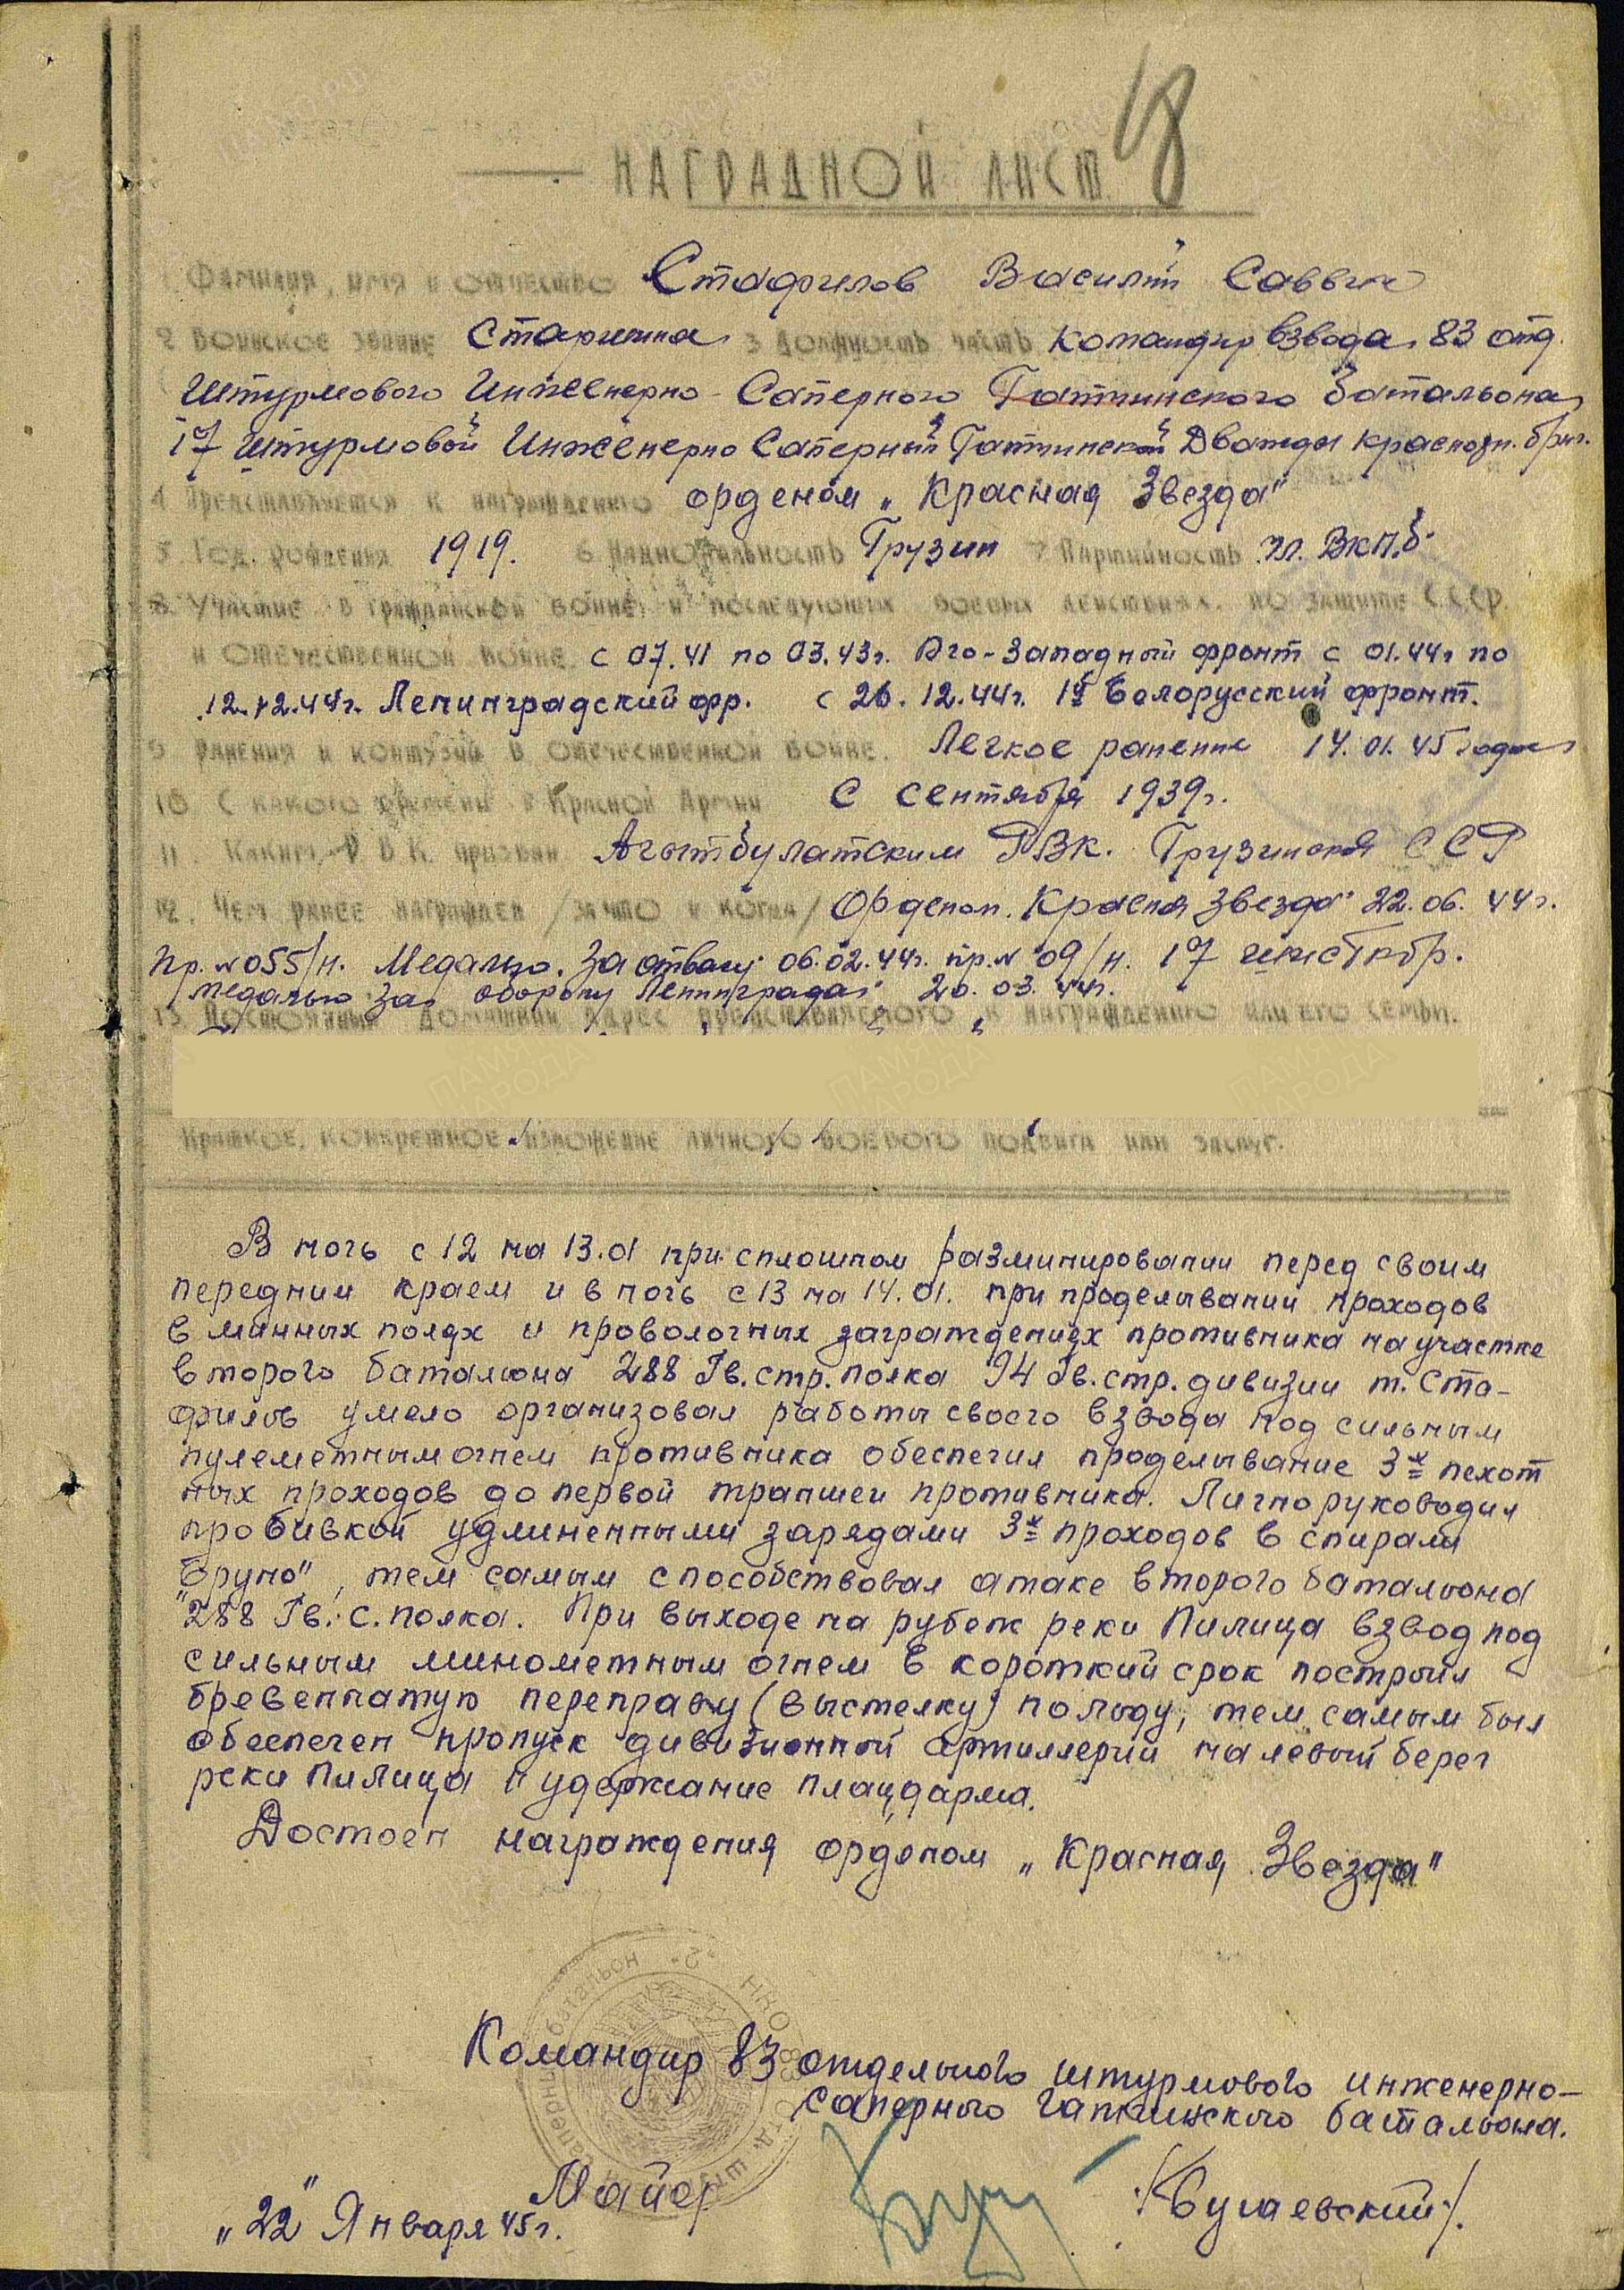 НАГРАДНОЙ ЛИСТ
Фамилия, имя и отчество Стафилов Василий Саввич
2 Воинское звание Старшина 3 Должность часть Командир взвода 83 отд.
Штурмового Инженерно-Саперного Гатчинского батальона
17 Штурмовой Инженерно Саперный Гатчинской Дважды краснозн. бриг.
4 Представляется к награждению орденом „Красная Звезда"
5 Год рождения 1919. 6 Национальность Грузин 7 Партийность чл. ВКП.б.
8. Участие в гражданской войне и последующих боевых действиях по защите С.С.С.Р.
и отечественной войне с 07.41 по 03.43г. Юго-Западный фронт с 01.44г по
12.12.44г. Ленинградский фр. с 26.12.44г. 1й Белорусский фронт.
9 Ранения и контузии в отечественной войне. Легкое ранение 14.01.45 года
10 С какого времени в Красной Армии С сентября 1939г.
11. Каким Р.В.К. призван РВК. Грузинская ССР
12. Чем ранее награжден /за что и когда/ Орденом „Красная Звезда" 22.06.44г.
Пр. №055/н. Медалью „За отвагу" 06.02.44г. пр.№ 09/н. 17
Медалью За оборону Ленинграда" 20.03.44г.
13 Постоянный домашний адрес представляемого к награждению или его семьи.
Краткое, конкретное изложение личного боевого подвига или заслуг.
В ночь с 12 на 13.01 при сплошном разминировании перед своим
передним краем и в ночь с 13 на 14.01. при проделывании проходов
в минных полях и проволочных заграждениях противника на участке
второго батальона 288 Гв.стр.полка 94 Гв.стр.дивизии т. Ста-
филов умело организовал работы своего взвода под сильным
пулеметным огнем противника обеспечил проделывание 3х пехот
ных проходов до первой траншеи противника. Лично руководил
пробивкой удлиненными зарядами 3х проходов в спирали
„Бруно", тем самым способствовал атаке второго батальона
288 Гв. С. полка. При выходе на рубеж реки Пилица взвод под
сильным минометным огнем в короткий срок построил
бревенчатую переправу (выстелку) по льду, тем самым был
обеспечен пропуск дивизионной артиллерии на левый берег
реки Пилица и удержание плацдарма.
Достоен награждения орденом „Красная Звезда"
Командир 83 отдельного штурмового инженерно-
саперного Гатчинского батальона.
Майор /Бугаевский/.
„22" Января 45г.